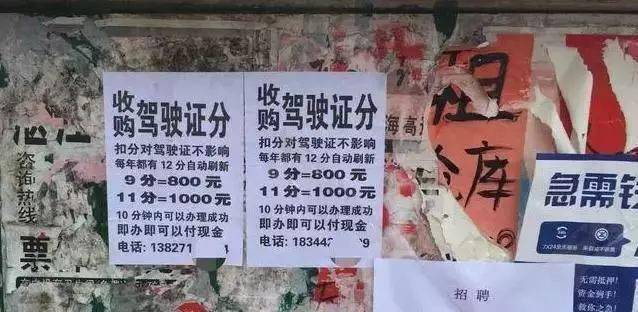 收购 驾驶证分
扣分对驾驶证不影响
每年都有12分自动刷新
9分=800元
11分=1000元
10分钟内可以办理成功
即办即可以付现金
电话: 13827
收购 驾驶证分
扣分对驾驶证不影响
每年都有12分自动刷新
9分=800元
11分=1000元
10分钟内可以办理成功
即办即可以付现金
电话: 18344
9
咨询热线
票
海高
租
库
急需钱
招聘
无需抵押!
资金到手!
救你之急!